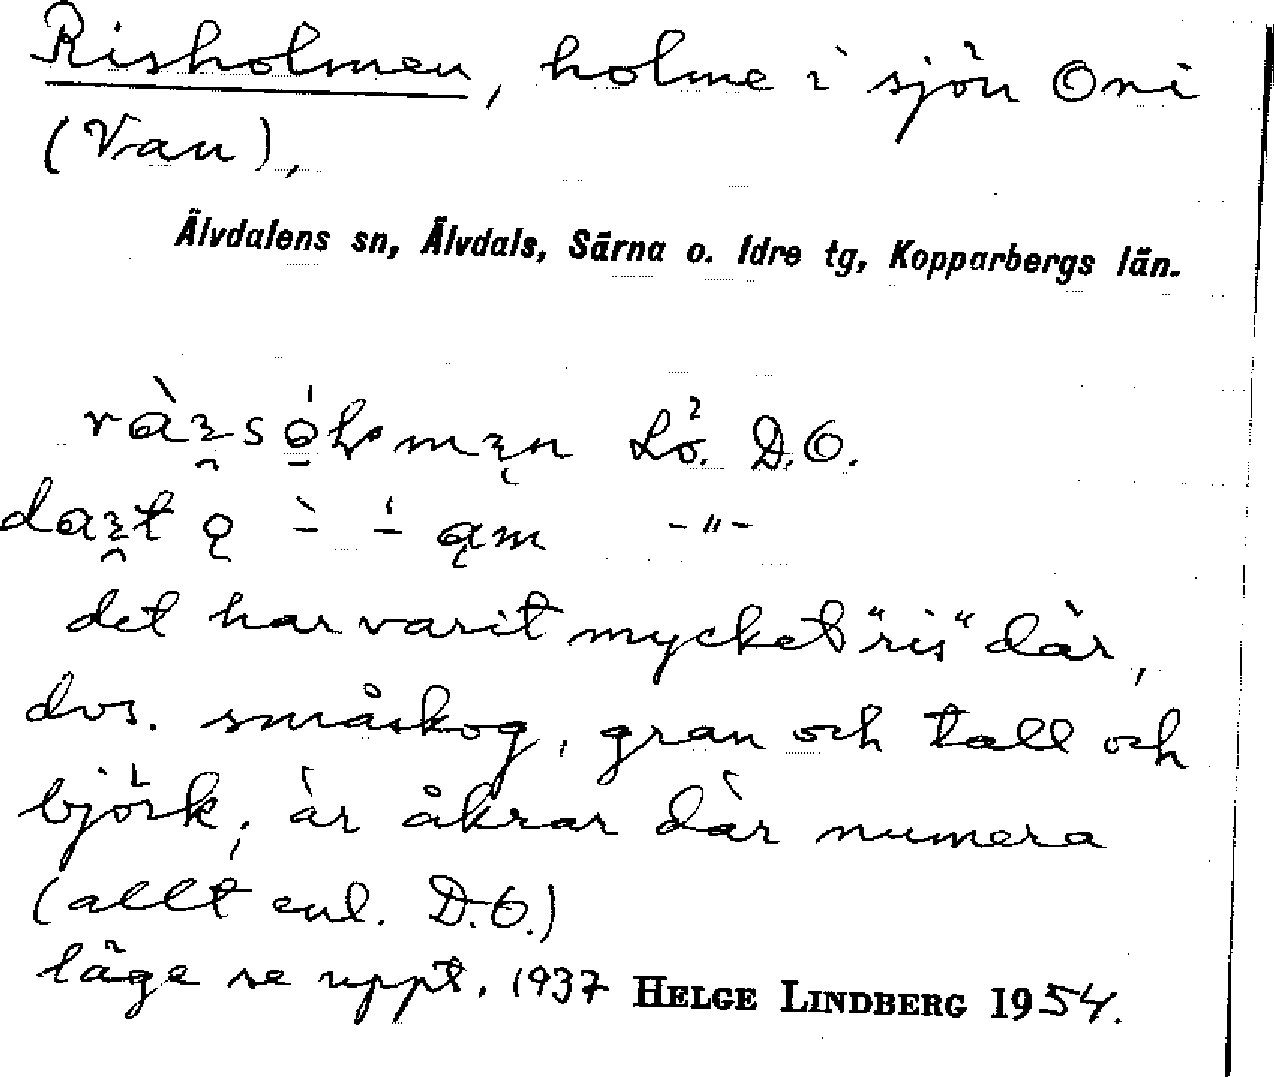 Risholmen, holme i sjön Oni
(Van),
Älvdalens sn, Älvdals, Särna o. Idre tg, Kopparbergs län.
Lö. D.O.
-"-
det har varit mycket "ris" där,
dvs. småskog, gran och tall och
björk; är åkrar där numera
(allt enl. D.O.)
läge se uppt. 1937 HELGE LINDBERG 1954.